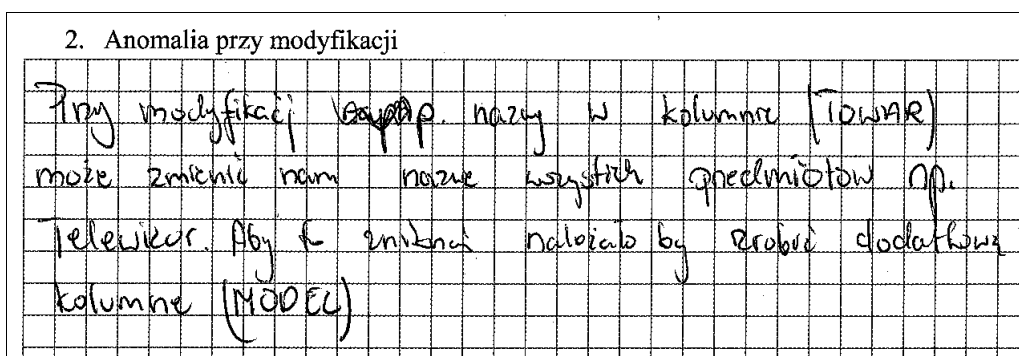 2. Anomalia przy modyfikacji
Przy modyfikacj np. nazwy w kolumnie (TOWAR)
może zmienić nam nazwe wszystkich przedmiotów np.
Telewizor. Aby należało by zrobić dodatkową
kolumne (MODEL)